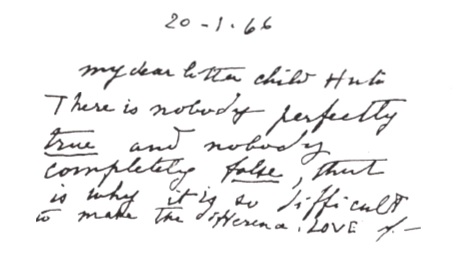 20-1.66
my dear little child Huta
There is nobody perfectly
true and nobody
completely false, that
is why it is so difficult
to make the difference. LOVE